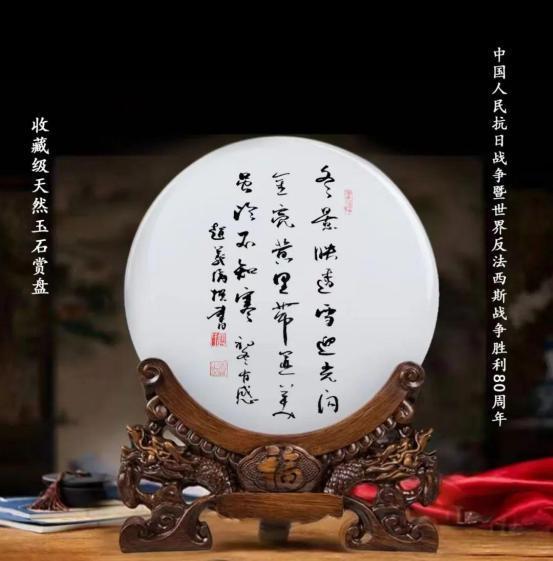 中国人民抗日战争暨世界反法西斯战争胜利80周年
冬景映雪迎光
金亮黄里带美
虽冷不知寒
有感
趙書
收藏级天然玉石赏盘
福